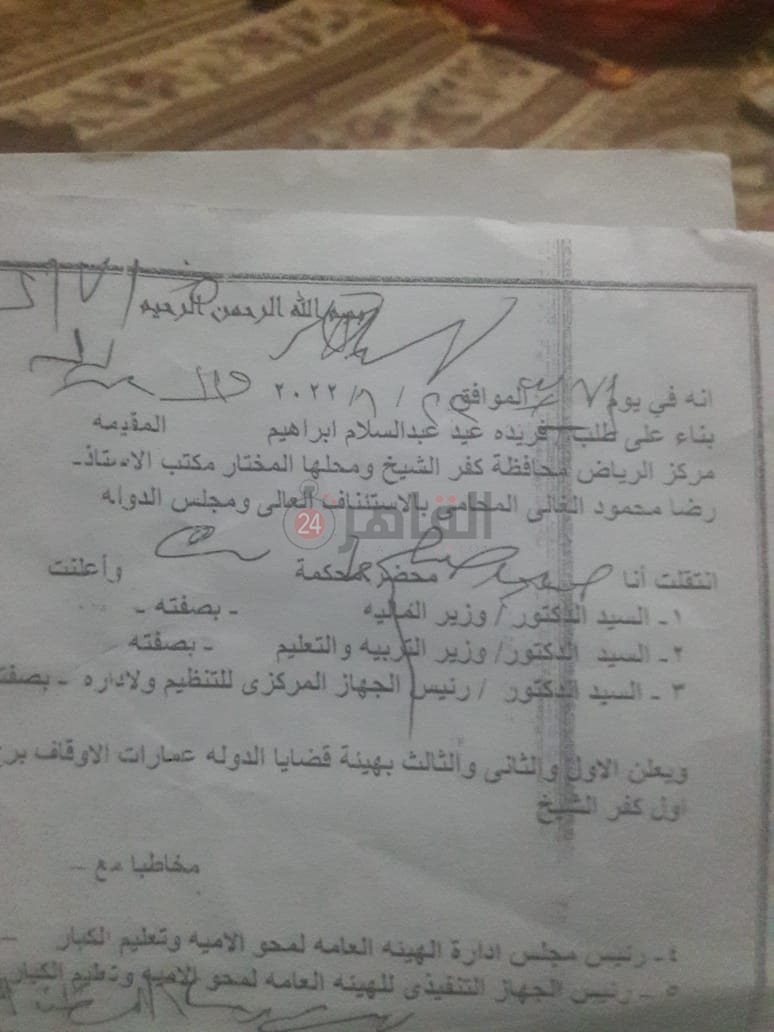 بسم الله الرحمن الرحيم
انه في يوم الموافق / / ٢٠٢٢
بناء على طلب / فريده عيد عبدالسلام ابراهيم المقيمه
مركز الرياض محافظة كفر الشيخ ومحلها المختار مكتب الاستاذ
رضا محمود الغالى المحامى بالاستئناف العالى ومجلس الدوله
القاهرة 24
انتقلت أنا محضر محكمة وأعلنت
١ـ السيد الدكتور / وزير الماليه ـ بصفته ـ
٢ـ السيد الدكتور/ وزير التربيه والتعليم ـ بصفته
٣ ـ السيد الدكتور / رئيس الجهاز المركزى للتنظيم ولاداره ـ بصفته
ويعلن الاول والثانى والثالث بهيئة قضايا الدوله عمارات الاوقاف برج
أول كفر الشيخ
مخاطبا مع ـ
٤ـ رئيس مجلس ادارة الهيئه العامه لمحو الاميه وتعليم الكبار ـ
٥ ـ رئيس الجهاز التنفيذى للهيئه العامه لمحو الاميه وتعليم الكبار